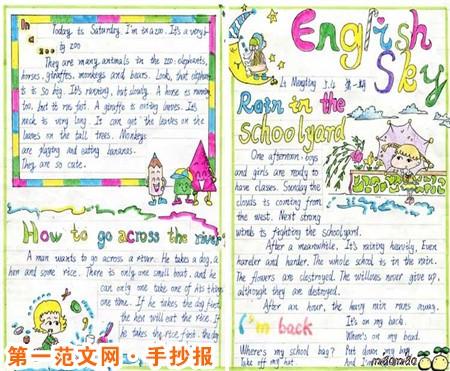 In a zoo
Today is Saturday. I'm in a zoo. It's a very
big zoo
They are many animals in the zoo: elephants,
horses, giraffes, monkeys and bears. Look, that elephant
is so big. It's running, but slowly. A horse is running
too, but it's fast. A giraffe is eating leaves. It's
neck is very long. It can get the leaves on the
leaves on the tall trees. Monkeys
are playing and eating bananas.
They are so cute.
How to go across the river
A man wants to go across a river. He takes a dog, a
hen and some rice. There is only one small boat, and he
can only one take one of his things
one time. If he takes the dog first
the hen will eat the rice. If
he takes the rice first, the dog
English
Sky
5.4 第一期
Rain in the
schoolyard
One afternoon, boys
and girls are ready to
have classes. Sunday the
clouds is coming from
the west. Next strong
winds is fighting the schoolyard.
After a meanwhile, It's raining heavily, Even
harder and harder. The whole school is in the rain.
The flowers are clestroyed. The willows never give up,
although they are destroyed.
After an hour, the heavy rain runs away.
I'm back
It's on my back.
Where's on my head.
Where's my school bag? Put down my bag
Take off my hat. And I'm
第一范文网·手抄报